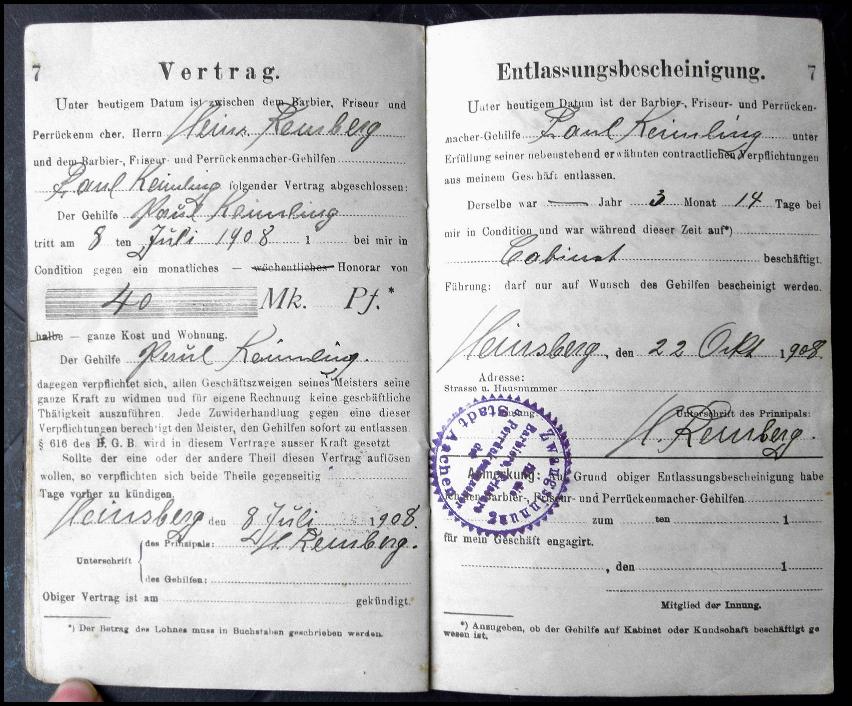 7
Vertrag.
Unter heutigem Datum ist zwischen dem Barbier, Friseur und
Perrückenm cher, Herrn Heinr. Remberg
und dem Barbier-, Friseur- und Perrückenmacher-Gehilfen
Paul Keimling folgender Vertrag abgeschlossen:
Der Gehilfe Paul Keimling
tritt am 8 ten Juli 1908 1 bei mir in
Condition gegen ein monatliches — wöchentliches Honorar von
40 Mk. Pf.*
halbe — ganze Kost und Wohnung.
Der Gehilfe Paul Keimling.
dagegen verpflichtet sich, allen Geschäftszweigen seines Meisters seine
ganze Kraft zu widmen und für eigene Rechnung keine geschäftliche
Thätigkeit auszuführen. Jede Zuwiderhandlung gegen eine dieser
Verpflichtungen berechtigt den Meister, den Gehilfen sofort zu entlassen.
§ 616 des B. G. B. wird in diesem Vertrage ausser Kraft gesetzt
Sollte der eine oder der andere Theil diesen Vertrag auflösen
wollen, so verpflichten sich beide Theile gegenseitig
Tage vorher zu kündigen.
Heinsberg den 8 Juli 1908.
Unterschrift
des Prinzipals: H. Remberg.
des Gehilfen:
Obiger Vertrag ist am gekündigt.
*) Der Betrag des Lohnes muss in Buchstaben geschrieben werden.
Entlassungsbescheinigung. 7
Unter heutigem Datum ist der Barbier-, Friseur- und Perrücken-
macher-Gehilfe Paul Keimling unter
Erfüllung seiner nebenstehend erwähnten contractlichen Verpflichtungen
aus meinem Geschäft entlassen.
Derselbe war — Jahr 3 Monat 14 Tage bei
mir in Condition und war während dieser Zeit auf*)
Cabinet beschäftigt.
Führung: darf nur auf Wunsch des Gehilfen bescheinigt werden.
Heinsberg, den 22 Okt 1908.
Adresse:
Strasse u. Hausnummer
Unterschrift des Prinzipals:
H. Remberg.
Zwangsinnung
Stadt Aachen
Anmerkung: Auf Grund obiger Entlassungsbescheinigung habe
Barbier-, Friseur- und Perrückenmacher-Gehilfen
zum ten 1
für mein Geschäft engagirt.
, den 1
Mitglied der Innung.
*) Anzugeben, ob der Gehilfe auf Kabinet oder Kundschaft beschäftigt ge
wesen ist.